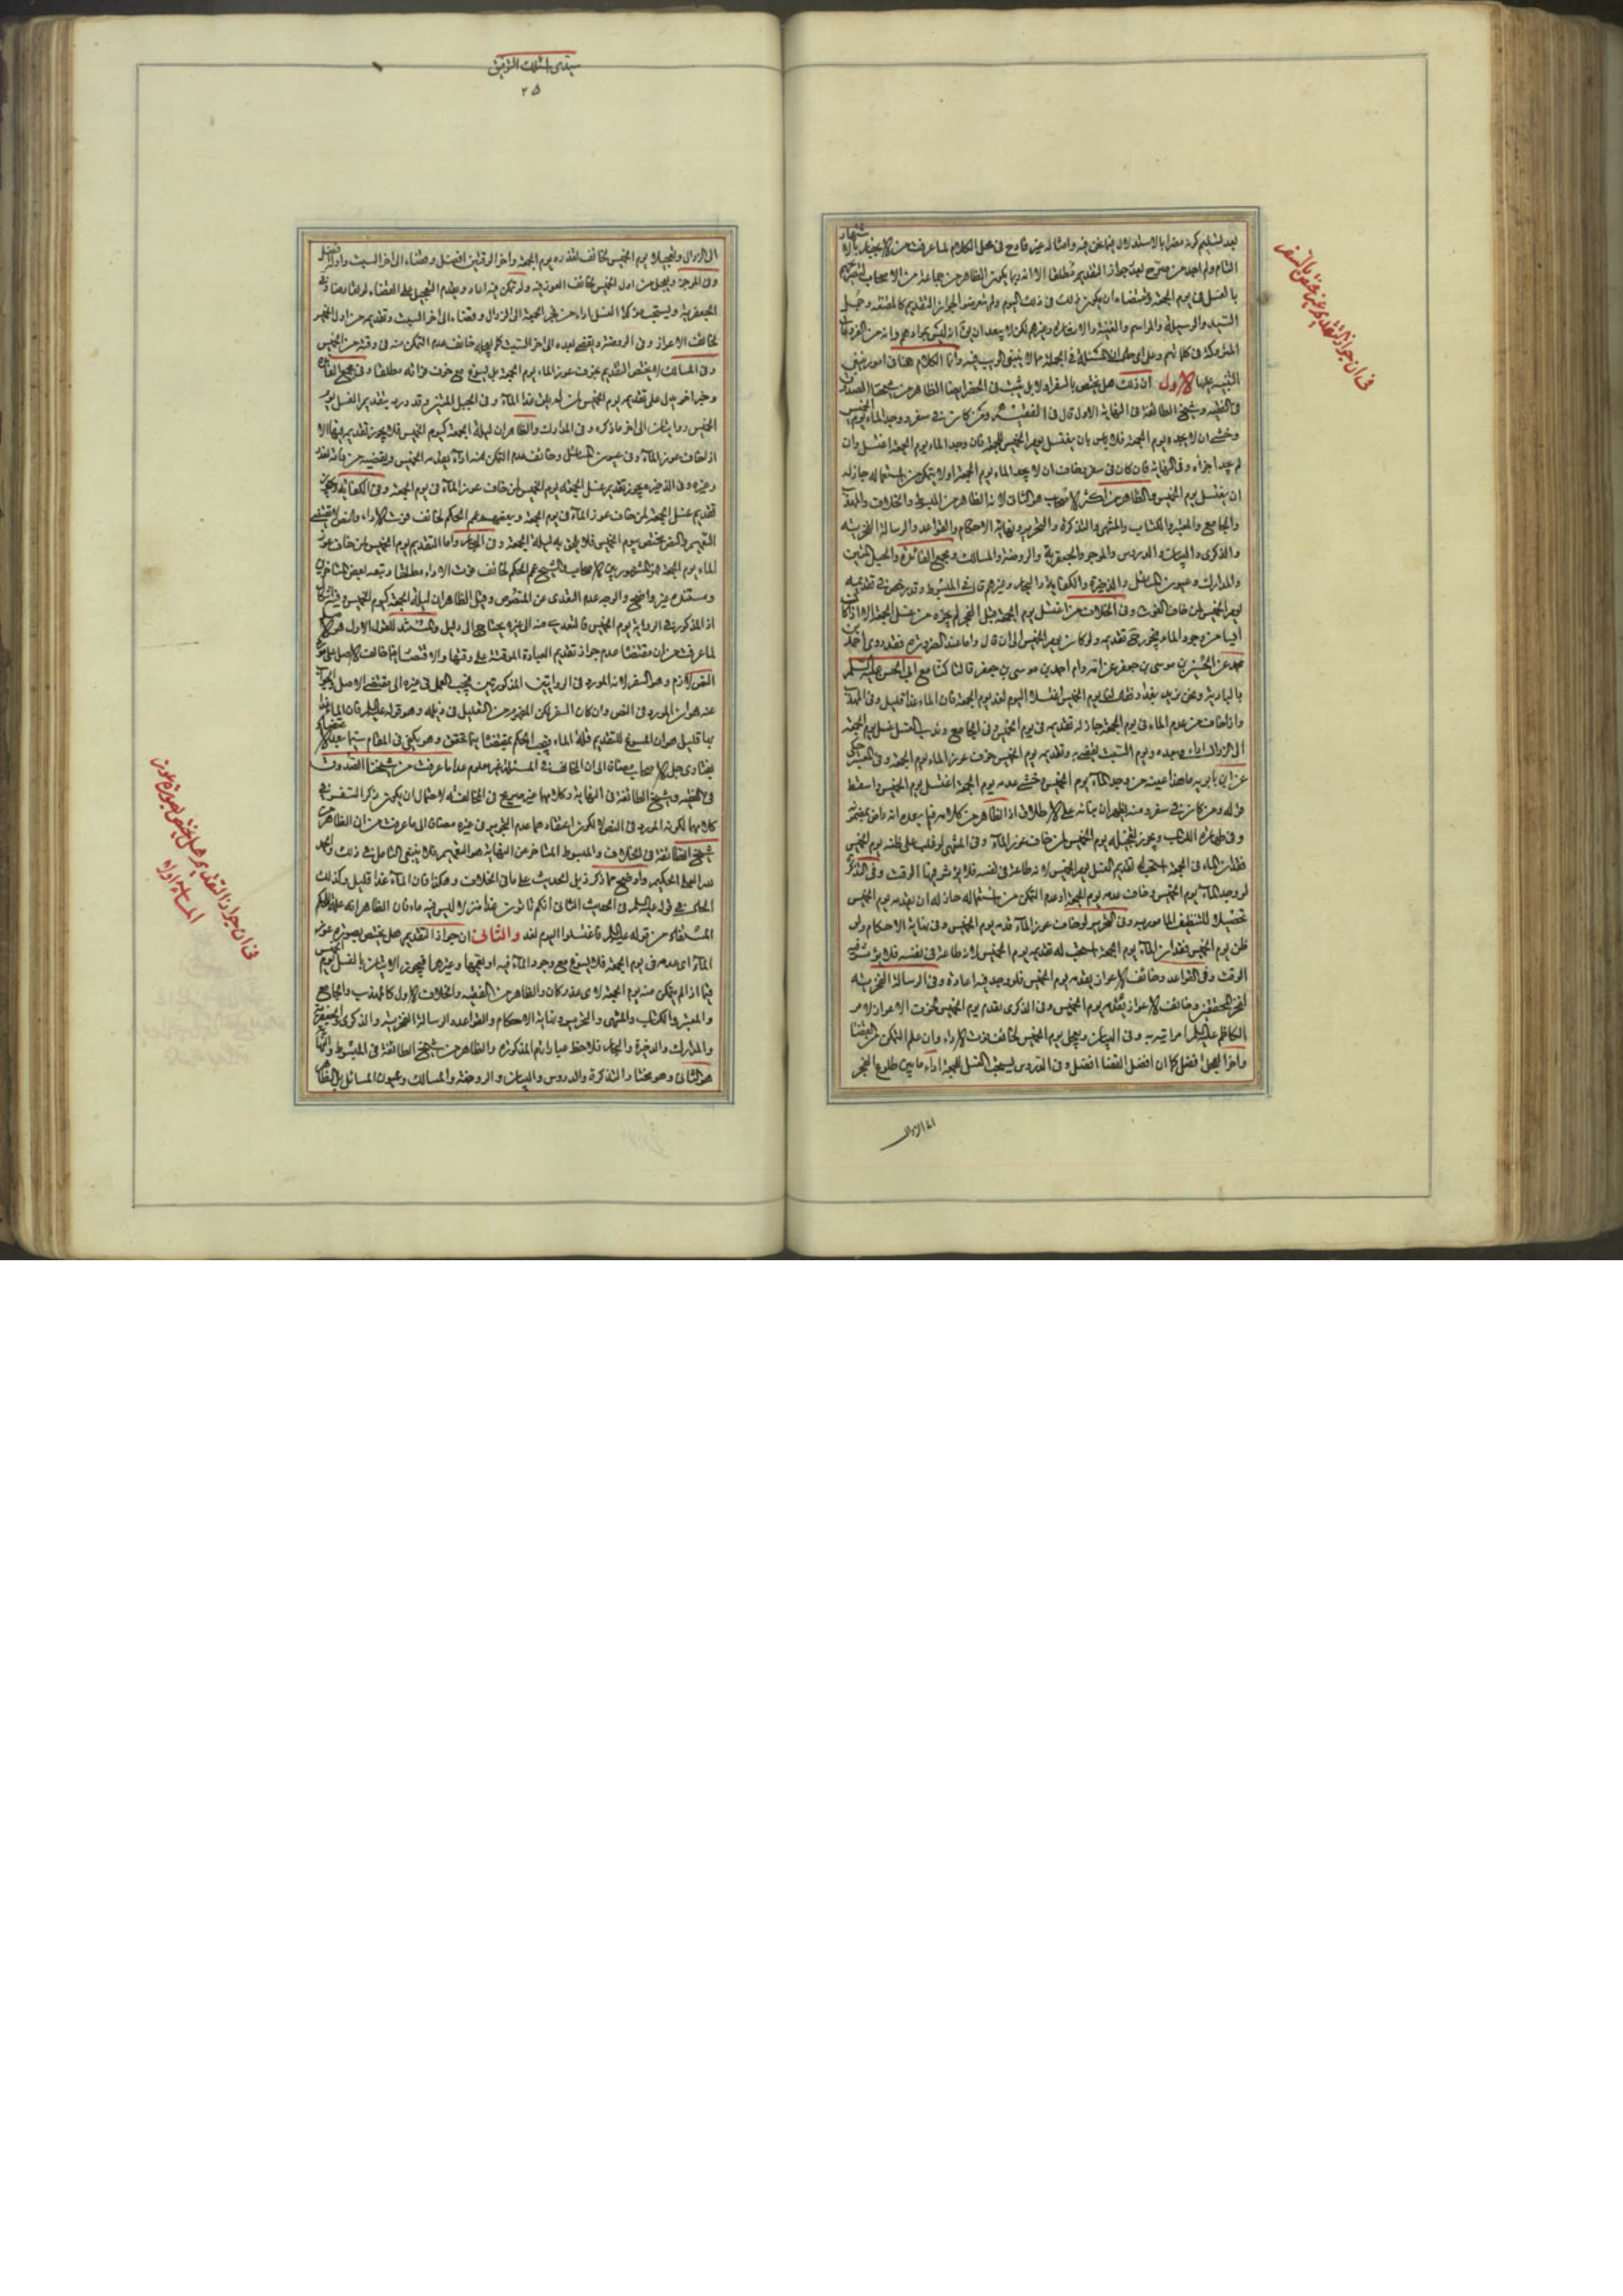 بعد تسليم كونه مضرا بالاستدلال فيما نحن فيه وامثاله غير قادح فى محل الكلام لما عرفت من الانجبار بالاشتهار
التام ولم اجد من صرح بعدم جواز التقديم مطلقا الا انه ربما يكون الظاهر من جماعة من الاصحاب
بالغسل فى يوم الجمعة ان يكون ذلك فى ذلك اليوم ولم يتعرضوا لجواز التقديم كالمقنعة وجمل
السيد والوسيلة والمراسم والغنية والاشارة وغيرهم لكن لا يبعد ان يق ان ليس مرادهم
المتروكة فى كلماتهم وعلى اى حال المسئلة فى الجملة مما لا ينبغى الريب فيه وانما الكلام هنا فى امور ينبغى
التنبيه عليها الاول ان ذلك هل يختص بالسفر او لا بل يثبت فى الحضر ايضا الظاهر من شيخنا الصدوق
فى الفقيه وشيخ الطائفة فى النهاية الاول قال فى الفقيه ومن كان فى سفر ووجد الماء يوم الخميس
وخشى ان لا يجده يوم الجمعة فلا باس بان يغتسل يوم الخميس للجمعة فان وجد الماء يوم الجمعة اغتسل وان
لم يجد اجزاه وفى النهاية فان كان فى سفر وخاف ان لا يجد الماء يوم الجمعة او لا يتمكن من استعماله جاز له
ان يغتسل يوم الخميس والظاهر من اكثر الاصحاب هو الثانى لانه الظاهر من المبسوط والخلاف والمهذب
والجامع والمعتبر والكتاب والمنتهى والتذكرة والتحرير ونهاية الاحكام والقواعد والرسالة الفخرية
والذكرى والبيان والدروس والموجز والجعفرية والروضة والمسالك ومجمع الفائدة والحبل المتين
والمدارك وعيون المسائل والذخيرة والكفاية والبحار وغيرهم قال فى المبسوط وقد رخص فى تقديمه
يوم الخميس لمن خاف الفوت وفى الخلاف من اغتسل يوم الجمعة قبل الفجر لم يجزه عن غسل الجمعة الا اذا كان
ايسا من وجود الماء فيجوز تقديمه ولو كان يوم الخميس الى ان قال واما عند الضرورة فقد روى احمد بن
محمد عن الحسين بن موسى بن جعفر عن امه وام احمد بن موسى بن جعفر قالتا كنا مع ابى الحسن عليه السلم
بالبادية ونحن نريد بغداد فقال لنا يوم الخميس اغتسلا اليوم لغد يوم الجمعة فان الماء غدا قليل وفى المهذب
واذا خاف من عدم الماء فى يوم الجمعة جاز له تقديمه فى يوم الخميس وفى الجامع وندب الغسل غسل يوم الجمعة
الى الزوال اداء وبعده ويوم السبت يقضيه وتقديمه يوم الخميس خوف عوز الماء يوم الجمعة وفى المعتبر حكى
عن ابن بابويه ما هذا عينه من وجد الماء يوم الخميس وخشى عدمه يوم الجمعة اغتسل يوم الخميس واسقط
قوله ومن كان فى سفر ومنه يظهر ان بنائه على الاطلاق اذ الظاهر من كلامه فيما بعده انه راض بمضمونه
وفى ظهر هذه الكتاب ويجوز تعجيله يوم الخميس لمن خاف عوز الماء وفى المنتهى لو غلب على ظنه يوم الخميس
فقدان الماء فى الجمعة استحب له تقديم الغسل يوم الخميس لانه طاعة فى نفسه فلا يؤثر فيها الوقت وفى التذكرة
لو وجد الماء يوم الخميس وخاف عدمه يوم الجمعة او عدم التمكن من استعماله جاز له ان يقدمه يوم الخميس
تحصيلا للتنظيف المامور به وفى التحرير لو خاف عوز الماء قدمه يوم الخميس وفى نهاية الاحكام ولو
ظن يوم الخميس فقدان الماء يوم الجمعة استحب له تقديمه يوم الخميس لانه طاعة فى نفسه فلا يؤثر فيه
الوقت وفى القواعد وخائف الاعواز يقدمه يوم الخميس فلو وجد فيه اعاده وفى الرسالة الفخرية
لفخر المحققين وخائف الاعواز يقدمه يوم الخميس وفى الذكرى يقدم يوم الخميس لخوف الاعواز لامر
الكاظم عليه السلم امراتيه به وفى البيان ويعجل يوم الخميس لخائف فوت الاداء وان علم التمكن من القضا
واخر التعجيل افضل كما ان افضل القضا افضل وفى الدروس يستحب الغسل للجمعة اداء ما بين طلوع الفجر
الى الزوال
فى ان جواز التقديم غير مختص بالسفر
سيدى اسئلك التوفيق
٢٥
الى الزوال وتعجيلا يوم الخميس لخائف تعذره يوم الجمعة واخر الوقتين افضل وقضاء الى اخر السبت واوله افضل
وفى الموجز ويعجل من اول الخميس لخائف العوز فيه ولو تمكن فيه اعاد ويقدم التعجيل على القضاء لو تعارضا وفى
الجعفرية ويستحب مؤكدا الغسل اداء من فجر الجمعة الى الزوال وقضاء الى اخر السبت وتقديمه من اول الخميس
لخائف الاعواز وفى الروضة ويقضى بعده الى اخر السبت كما يعجله خائف عدم التمكن منه فى وقته من الخميس
وفى المسالك لا يختص التقديم بخوف عوز الماء يوم الجمعة بل يسوغ مع خوف فواته مطلقا وفى مجمع الفائدة
وخبر اخر يدل على تقديمه يوم الخميس لمن له ظن بقلة الماء وفى الحبل المتين وقد ورد بتقديم الغسل يوم
الخميس روايتان الى اخر ما ذكره وفى المدارك والظاهر ان ليلة الجمعة كيوم الخميس فلا يجوز تقديمه فيها الا
اذا خاف عوز الماء وفى عيون المسائل وخائف عدم التمكن منه اداء يقدمه الخميس ويقضيه من فاته لعذر
وغيره وفى الذخيرة يجوز تقديم غسل الجمعة يوم الخميس لمن خاف عوز الماء فى يوم الجمعة وفى الكفاية ويجوز
تقديم غسل الجمعة لمن خاف عوز الماء فى يوم الجمعة وبعضهم عمم الحكم لخائف فوت الاداء والنص لا يقتضى
التعميم والنص مختص بيوم الخميس فلا يلحق به ليلة الجمعة وفى البحار واما التقديم يوم الخميس لمن خاف عوز
الماء يوم الجمعة هو المشهور بين الاصحاب والشيخ عمم الحكم لخائف فوت الاداء مطلقا وتبعه بعض المتاخرين
ومستنده غير واضح والوجه عدم التعدى عن المنصوص وقيل الظاهر ان ليلة الجمعة كيوم الخميس وفيه اشكال
اذ المذكور فى الرواية يوم الخميس فالتعدى منه الى غيره يحتاج الى دليل والمستند للقول الاول هو الاصل
لما عرفت من ان مقتضا عدم جواز تقديم العبادة الموقتة على وقتها والاقتصار فيما خالف الاصل على مورد
النص لازم وهو السفر لانه المورد فى الروايتين المذكورتين فيجب العمل فى غيره الى مقتضى الاصل والجواب
عنه هو ان المورد فى النص وان كان السفر لكن المفهوم من التعليل فى ذيله وهو قوله عليه السلم فان الماء غدا
بها قليل هو ان المسوغ للتقديم قلة الماء فيتبع الحكم بمقتضا اينما تحقق وهو يكفى فى المقام سيما بعد الاعتضاد
بفتاوى جل الاصحاب مضافا الى ان المخالف فى المسئلة غير معلوم عدا ما عرفت من شيخنا الصدوق
فى الفقيه وشيخ الطائفة فى النهاية وكلامهما غير صريح فى المخالفة لاحتمال ان يكون ذكر السفر فى
كلامهما لكونه المورد فى النص لا لكون اعتقادهما عدم التجويز فى غيره مضافا الى ما عرفت من ان الظاهر من
شيخ الطائفة فى الخلاف والمبسوط المتاخر عن النهاية هو التعميم فلا ينبغى التامل فى ذلك والحمد
لله العلى الحكيم واوضح مما ذكر ذيل الحديث على ما فى الخلاف وهكذا فان الماء غدا قليل وكذلك
الحال فى قوله عليه السلم فى الحديث الثانى انكم تاتون غدا منزلا ليس فيه ماء فان الظاهر انه علة للحكم
المستفاد من قوله عليه السلم فاغتسلوا اليوم لغد والثانى ان جواز التقديم هل يختص بصورة عوز
الماء اى عدمه فى يوم الجمعة فلا يسوغ مع وجود الماء فيه او يعمها وغيرها فيجوز الاتيان بالغسل يوم الخميس
فيما اذا لم يتمكن منه يوم الجمعة لاى عذر كان والظاهر من الفقيه والخلاف الاول كالمهذب والجامع
والمعتبر والكتاب والمنتهى والتحرير ونهاية الاحكام والقواعد والرسالة الفخرية والذكرى والجعفرية
والمدارك والذخيرة والبحار فلاحظ عباراتهم المذكورة والظاهر من شيخ الطائفة فى المبسوط والنهاية
هو الثانى وهو مختار التذكرة والدروس والبيان والروضة والمسالك وعيون المسائل بل الظاهر
فى ان جواز التقديم هل يختص بصورة عوز
الماء او لا